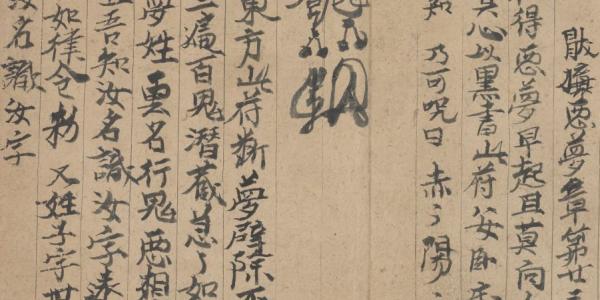 厭攘惡夢章第廿三
得惡夢早起且莫向
其心以黒書此符安卧床
知 乃可咒曰 赤〻陽〻
東方此符断夢辟除不
三遍百鬼潜藏急〻如
夢姓雲名行鬼惡想
吾知汝名識汝字遠
如律令敕 又姓子字世
汝名識汝字